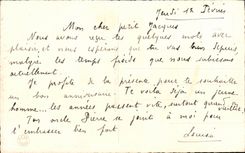 Jeudi 12 Février
Mon cher petit Jacques
Nous avons reçu tes quelques mots avec
plaisir, et nous espérons que tu vas bien depuis
malgré les temps froids que nous subissons
actuellement.
Je profite de la présente pour te souhaiter
un bon anniversaire. Te voilà déjà un jeune
homme... les années passent vite, surtout quand on vieillit,
Ton oncle Pierre se joint à moi pour
t'embrasser bien fort
Louisa